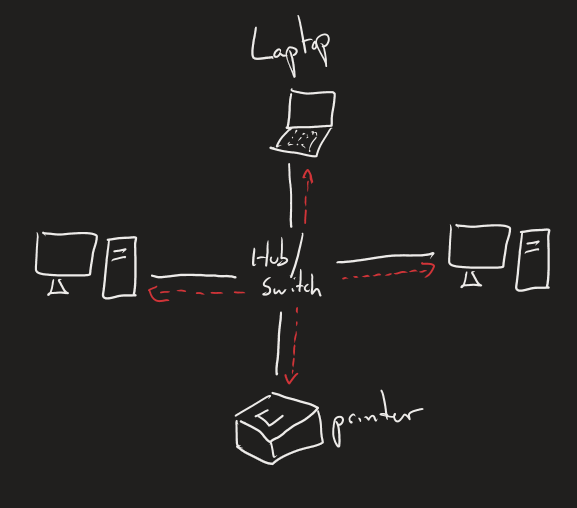 Laptop
Hub/
Switch
printer